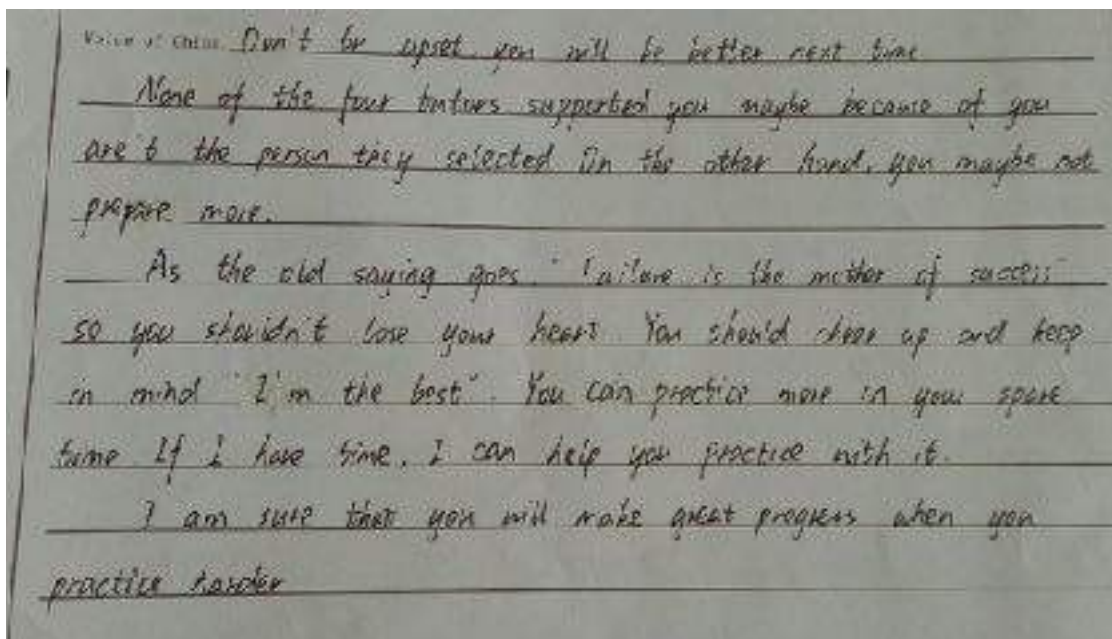 Voice of China. Don't be upset. you will be better next time
None of the four tutors supported you maybe because of you
are't the person they selected On the other hand, you maybe not
prepare more.
As the old saying goes. "Failure is the mother of success"
so you shouldn't lose your heart. You should cheer up and keep
in mind "I'm the best". You can practice more in your spare
time. If I have time, I can help you practice with it.
I am sure that you will make great progress when you
practice harder